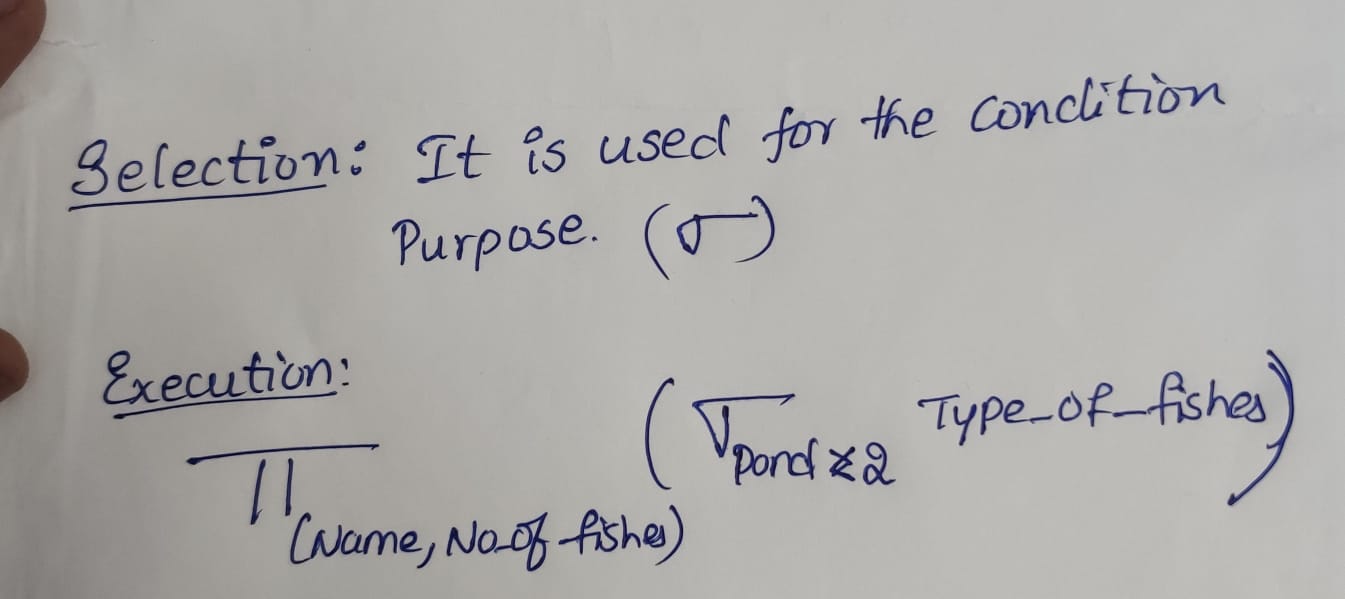 Selection: It is used for the condition
Purpose. (σ)
Execution:
π(Name, No_of_fishes) (σpond 2 Type_of_fishes)